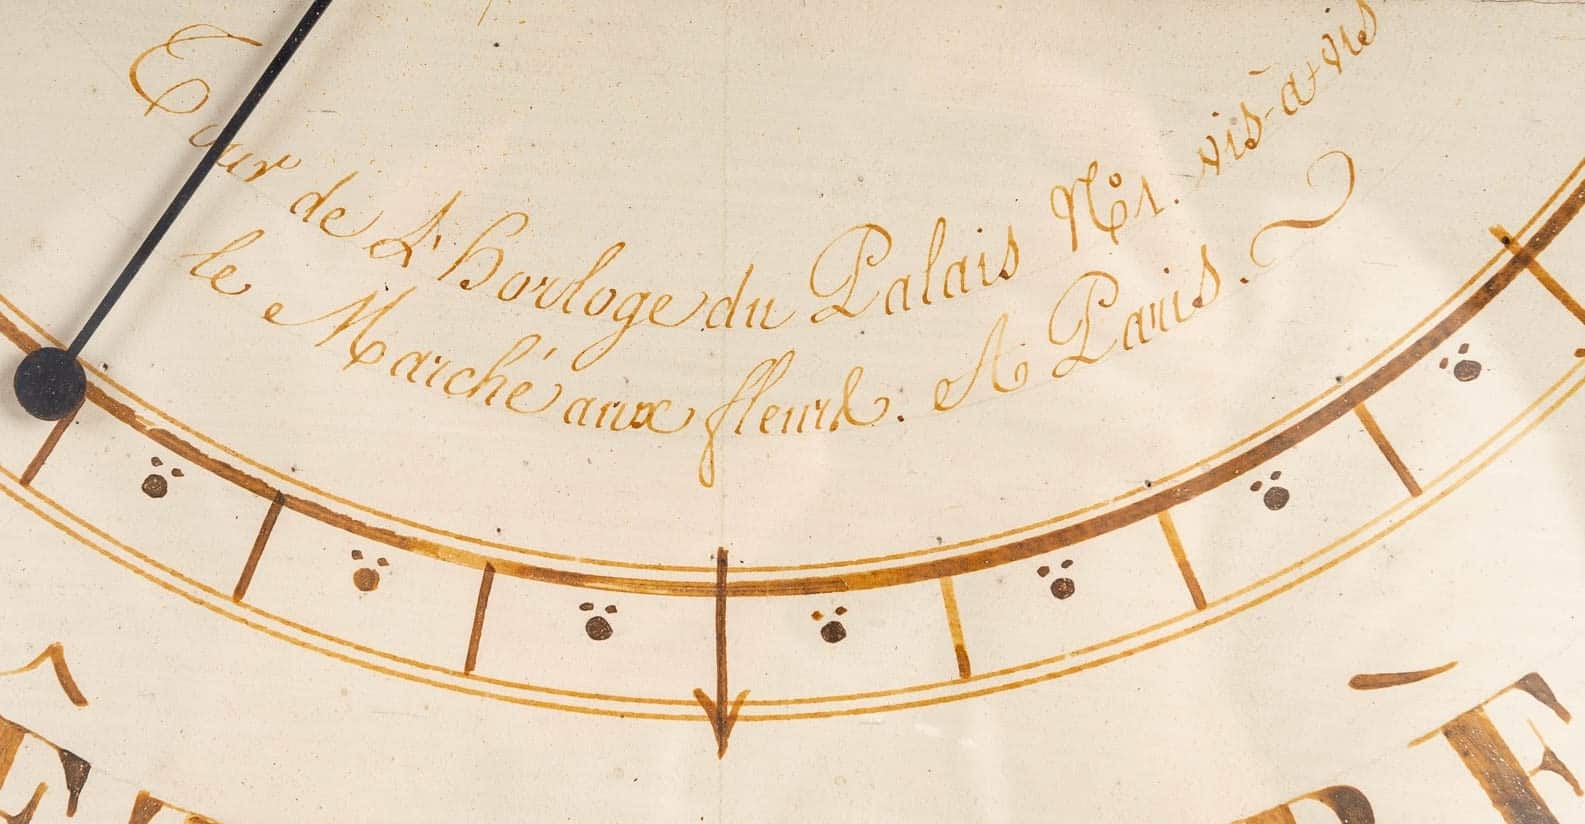 Tour de L'horloge du Palais N°1. vis-à-vis
le Marché aux fleurs. A Paris.